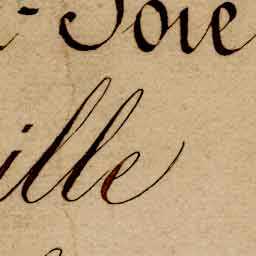 -Soie
ille